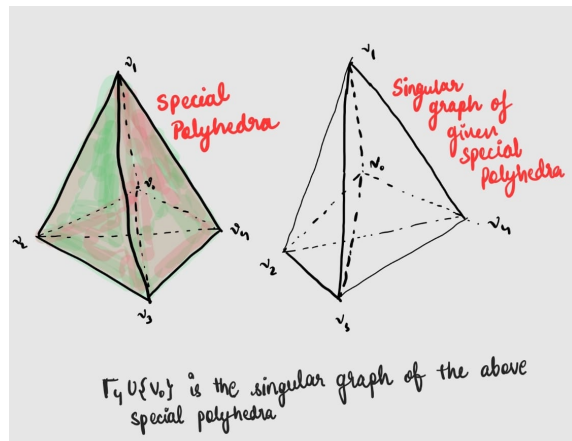 v₁
special
Polyhedra
v₀
v₂
v₄
v₃
v₁
Singular
graph of
given
special
polyhedra
v₀
v₄
v₂
v₃
Γ₄ ∪ {v₀} is the singular graph of the above
special polyhedra